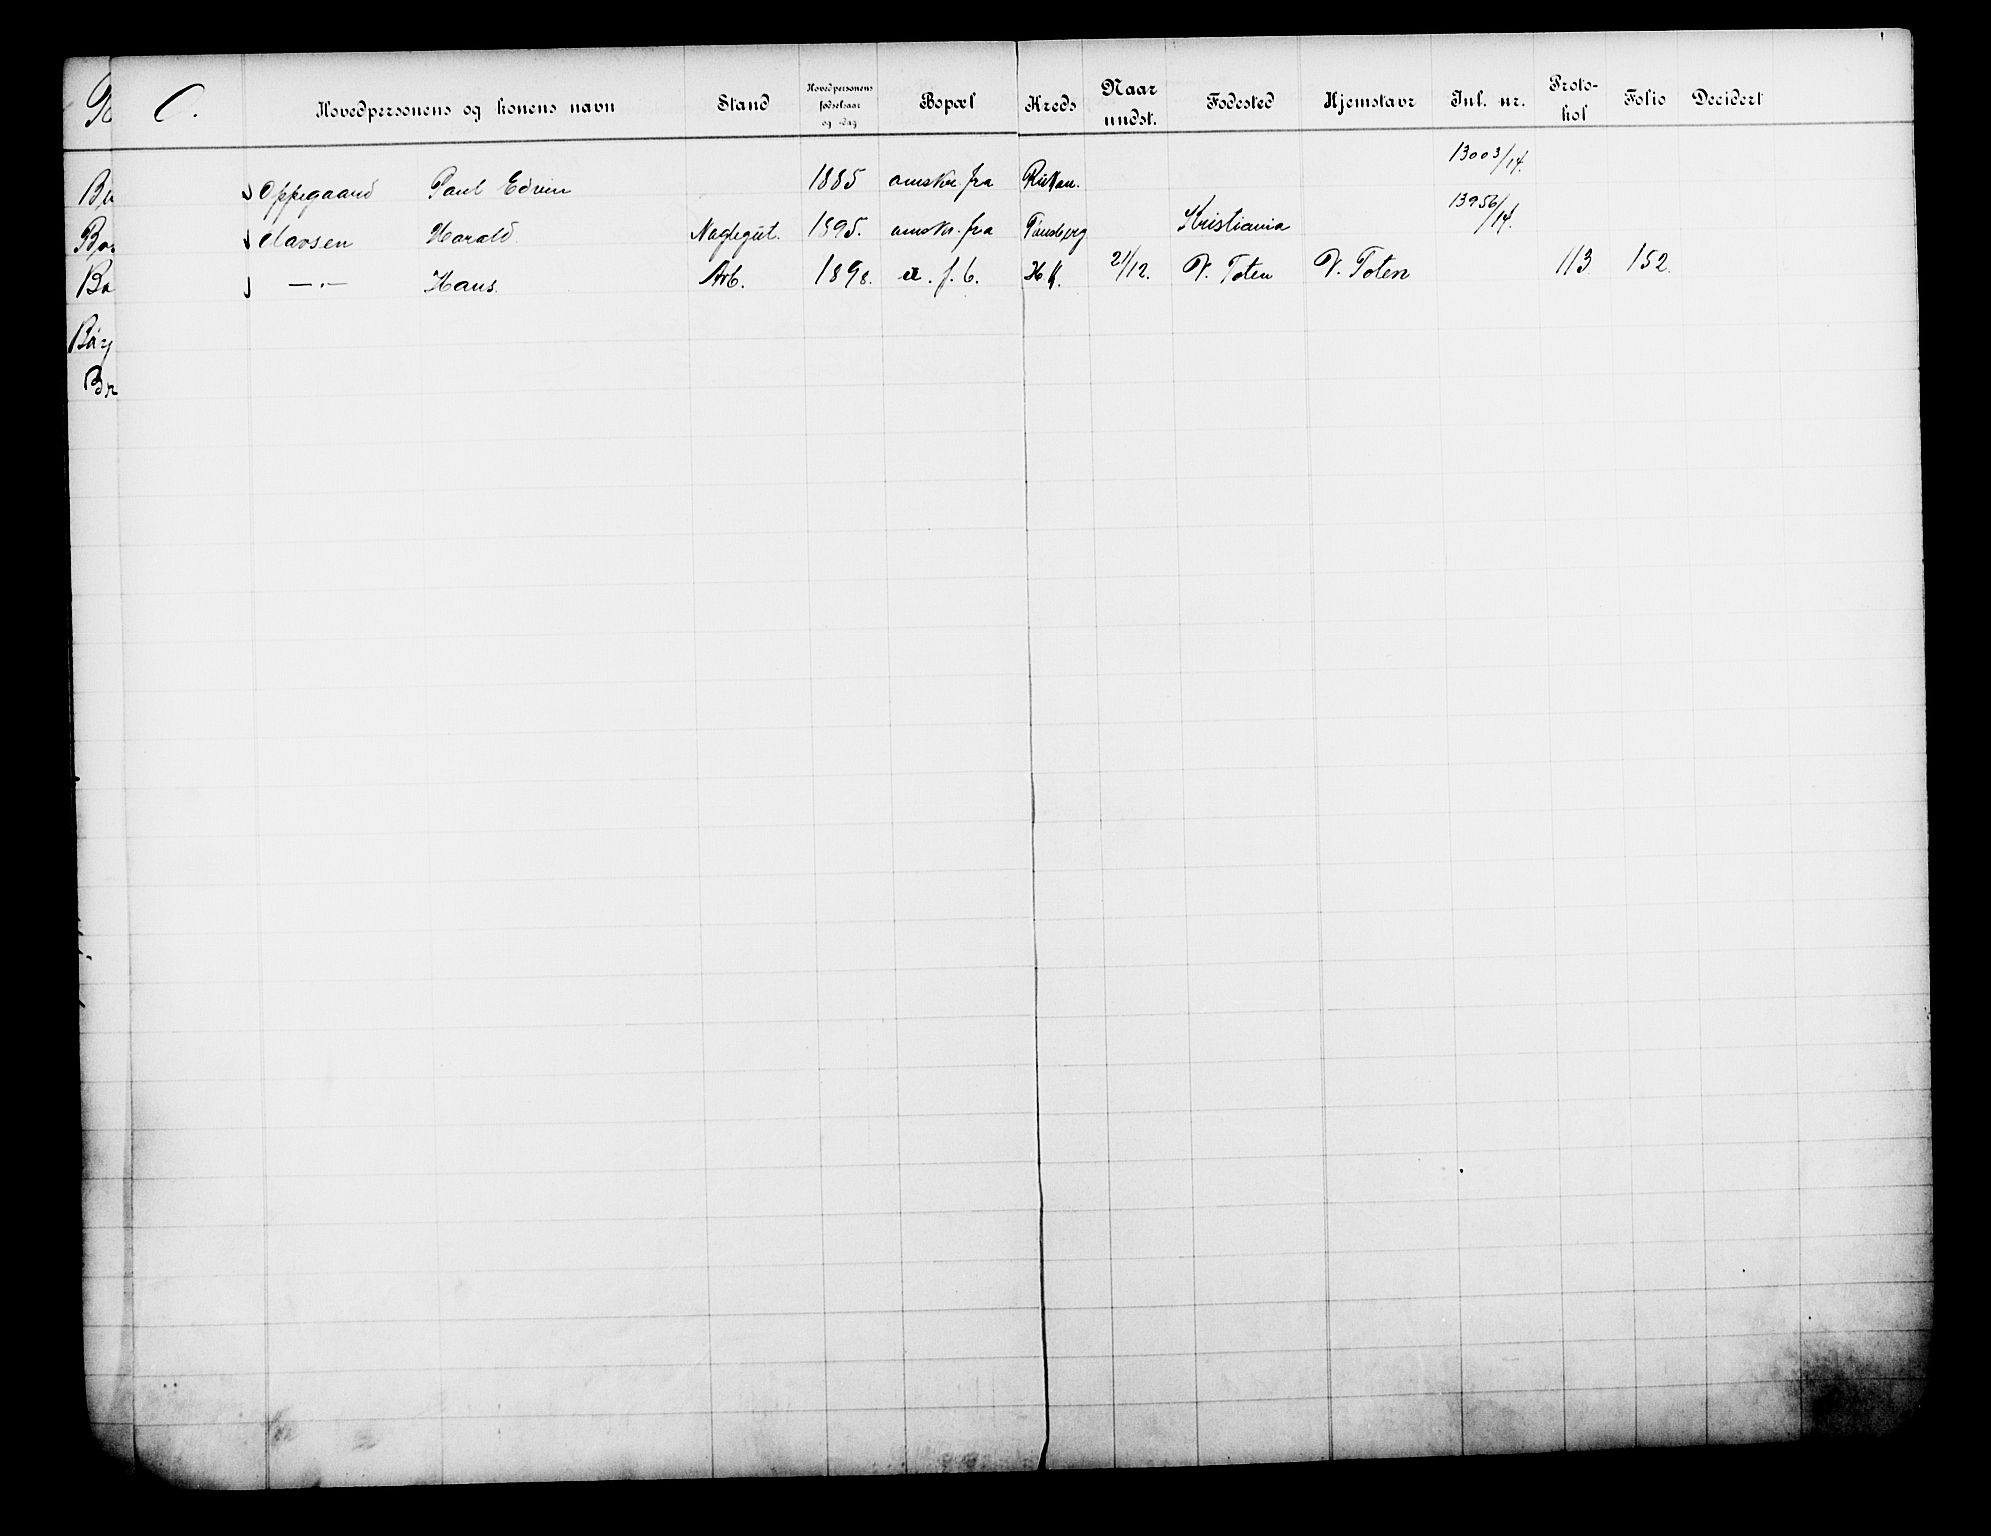 C. Hovedpersonens og konens navn Stand Hovedpersonens fødselsaar og -dag Bopæl Kreds Naar undst. Fødested Hjemstavr Jnl. nr. Proto-kol Folio Decidert
Oppegaard Paul Edvin 1885 omskr. fra Riukan. 13003/14.
Olavsen Harald Maglegut. 1895. omskr. fra Tønsberg Kristiania 13956/14.
—"— Hans. Arb. 1898. u. f. b. H.K. 21/12. V. Toten V. Toten 113 152.